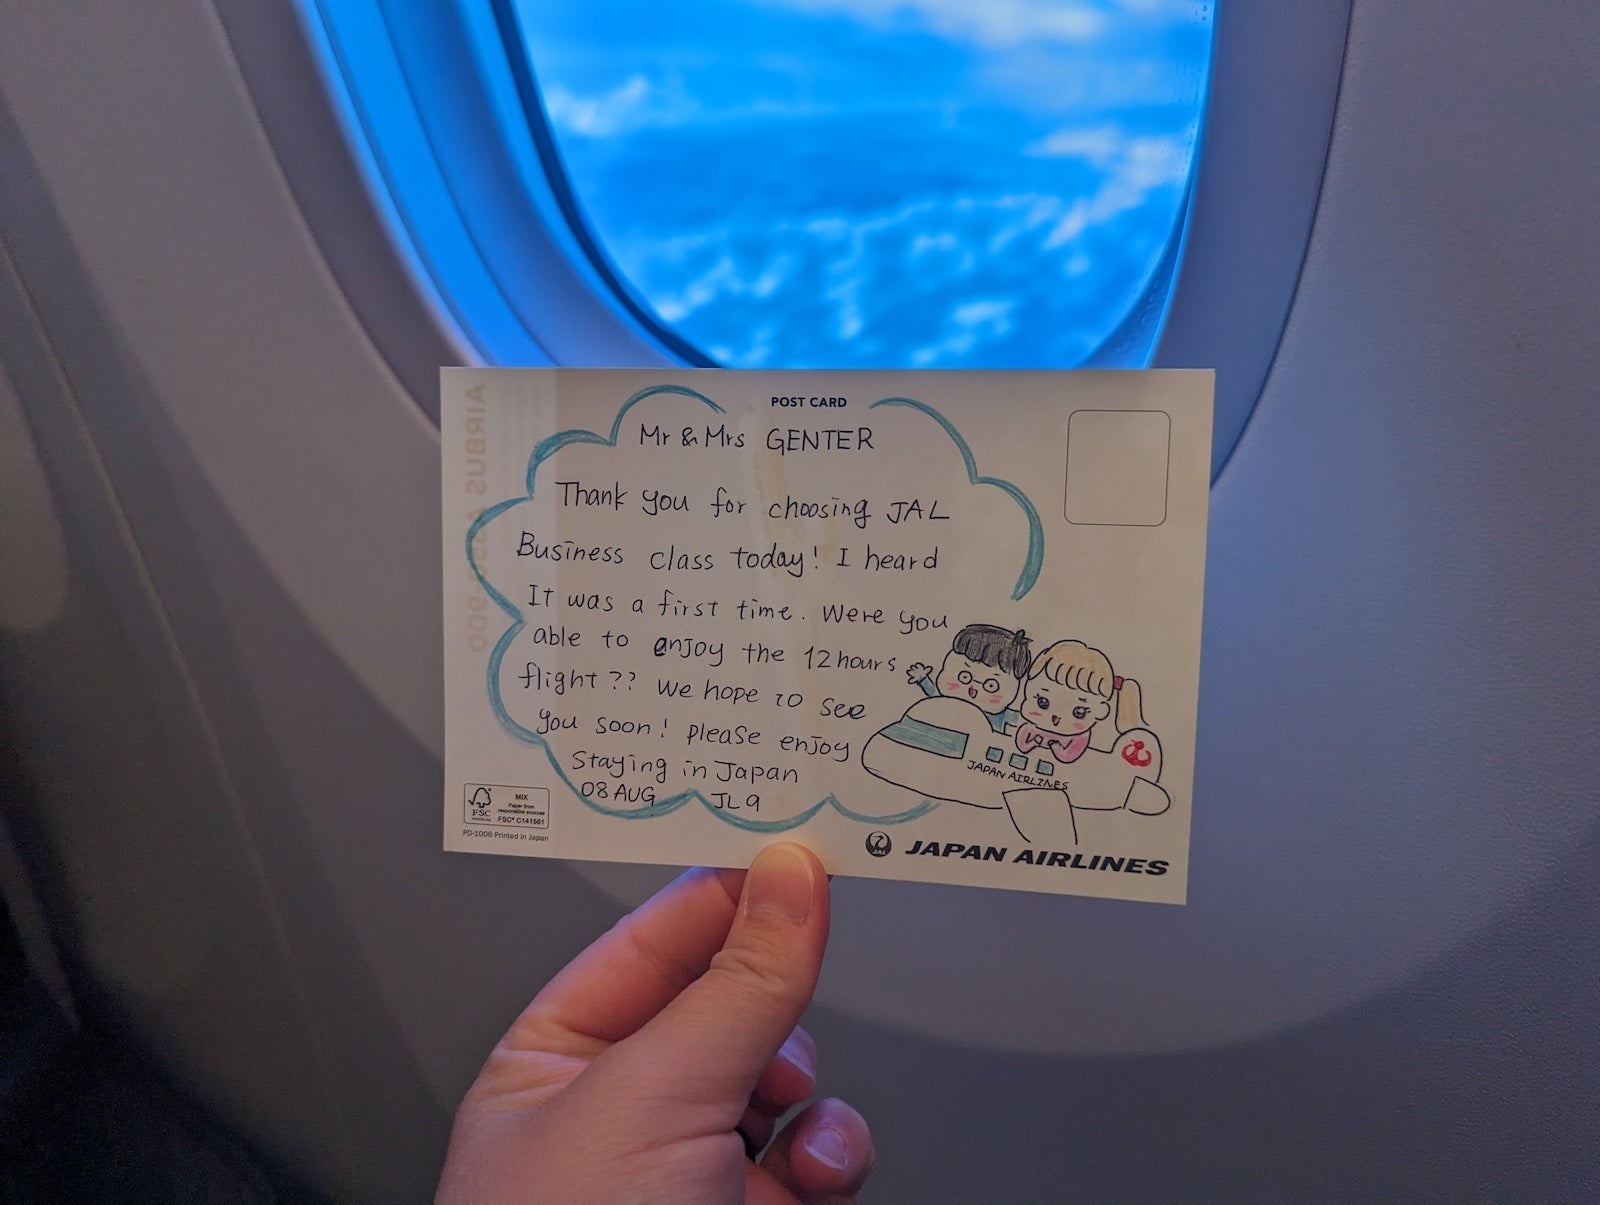 POST CARD
Mr & Mrs GENTER
Thank you for choosing JAL
Business class today! I heard
It was a first time. Were you
able to enjoy the 12hours
flight?? We hope to see
you soon! please enjoy
staying in Japan
08 AUG JL9
JAPAN AIRLINES
MIX
Paper from
responsible sources
FSC
FSC® C141561
PD-1006 Printed in Japan
JAL
JAPAN AIRLINES
AIRBUS